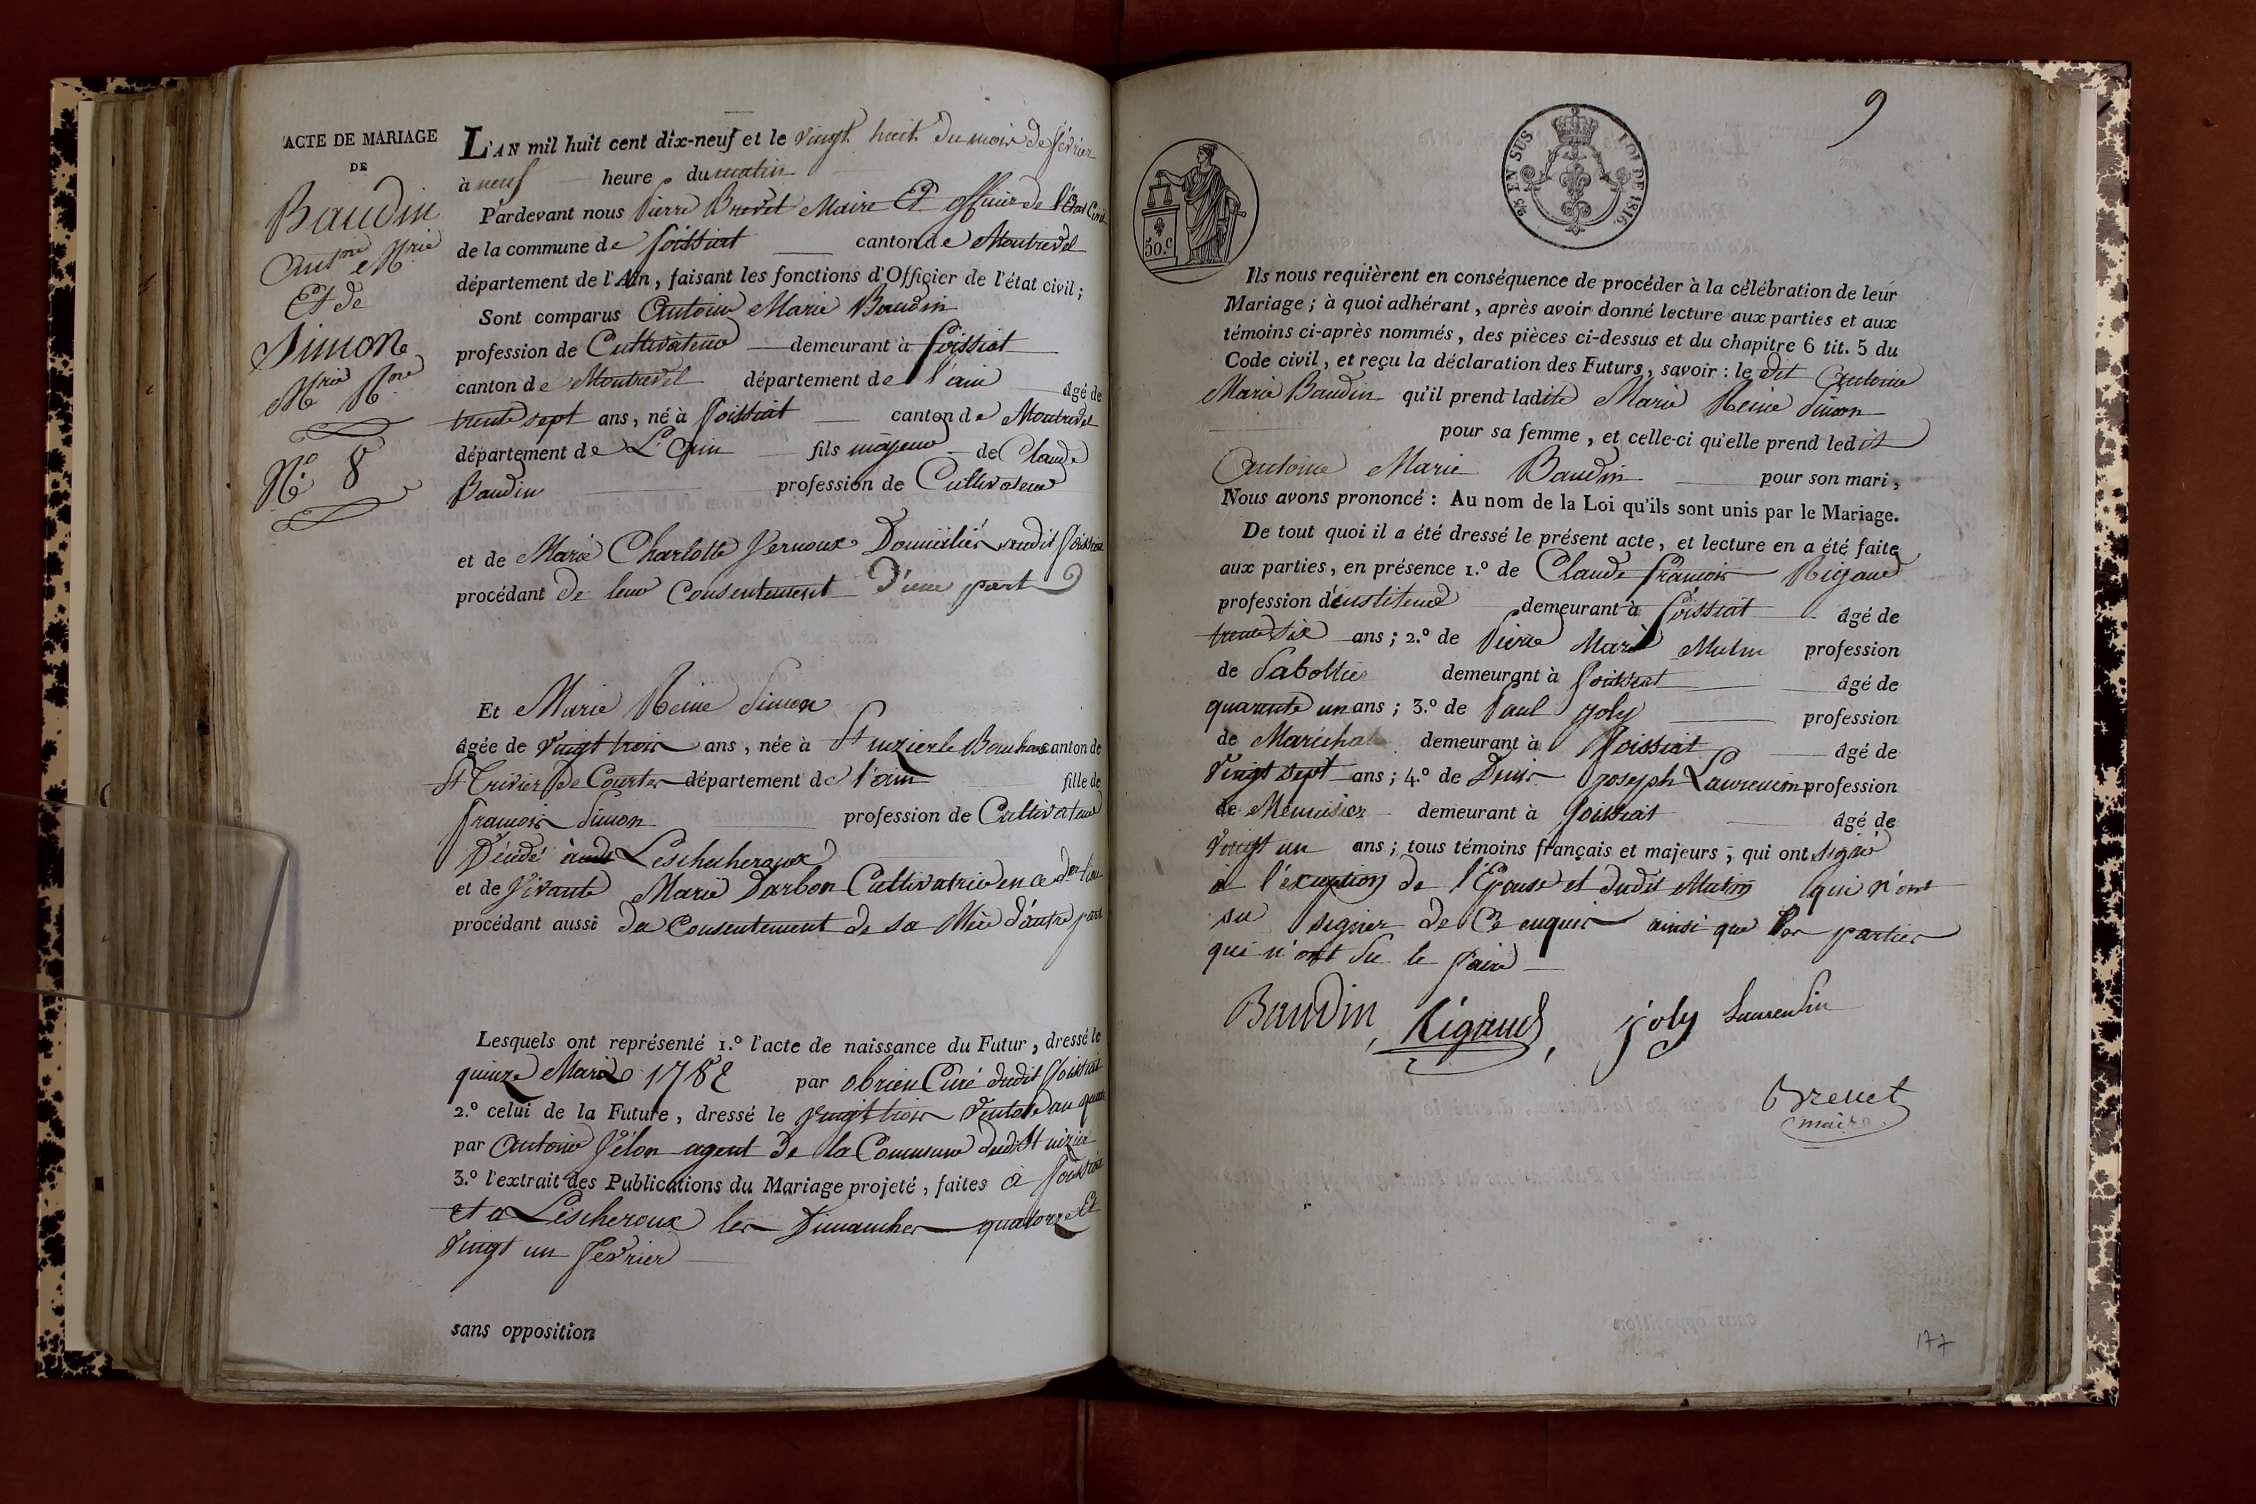 ACTE DE MARIAGE
DE
Baudin
Antne Mrie
Et de
Simon
Mrie Rne
N.° 8
L'AN mil huit cent dix-neuf et le vingt huit du mois de février
à neuf heure du matin
Pardevant nous Pierre Brevet Maire Et officier de l'État Civil
de la commune de foissiat canton de Montrevel
département de l'Ain, faisant les fonctions d'Officier de l'état civil;
Sont comparus Antoine Marie Baudin
profession de Cultivateur demeurant à foissiat
canton de Montrevel département de l'ain âgé de
trente sept ans, né à foissiat canton de Montrevel
département de L'Ain fils majeur de Claude
Baudin profession de Cultivateur
et de Marie Charlotte Vernoux Domiciliés audit foissiat
procédant de leur Consentement D'une part
Et Marie Reine Simon
âgée de vingt trois ans, née à St nizier le Bouchoux canton de
St Trivier De Courtes département de l'ain fille de
françois Simon profession de Cultivateur
Décédé Lescheheroux
et de vivante Marie Darbon Cultivatrice en ce der lieu
procédant aussi du Consentement de sa Mère d'autre part
Lesquels ont représenté 1.° l'acte de naissance du Futur, dressé le
quinze Mars 1782 par obrien Curé dudit foissiat
2.° celui de la Future, dressé le vingt trois ventose an quatre
par Antoine Vélon agent De la Commune dudit St nizier
3.° l'extrait des Publications du Mariage projeté, faites à foissiat
et a Lescheroux les Dimanches quatorze Et
vingt un février
sans opposition
9
5/2 EN SUS
LOI DE 1816.
50.c
Ils nous requièrent en conséquence de procéder à la célébration de leur
Mariage; à quoi adhérant, après avoir donné lecture aux parties et aux
témoins ci-après nommés, des pièces ci-dessus et du chapitre 6 tit. 5 du
Code civil, et reçu la déclaration des Futurs, savoir: le dit Antoine
Marie Baudin qu'il prend ladite Marie Reine Simon
pour sa femme, et celle-ci qu'elle prend ledit
Antoine Marie Baudin pour son mari,
Nous avons prononcé: Au nom de la Loi qu'ils sont unis par le Mariage.
De tout quoi il a été dressé le présent acte, et lecture en a été faite
aux parties, en présence 1.° de Claude françois Rigaud
profession d'instituteur demeurant à foissiat âgé de
trente six ans; 2.° de Pierre Marie Mutin profession
de Sabottier demeurant à foissiat âgé de
quarante un ans; 3.° de Paul Joly profession
de Maréchal demeurant à foissiat âgé de
vingt sept ans; 4.° de Denis Joseph Laurencin profession
de Menuisier demeurant à foissiat âgé de
vingt un ans; tous témoins français et majeurs, qui ont signé
à l'exception de l'Épouse et dudit Mutin qui n'ont
su signer de Ce enquis ainsi que les parties
qui n'ont Su le faire
Baudin, Rigaud, joly Laurensin
Brevet
maire
177